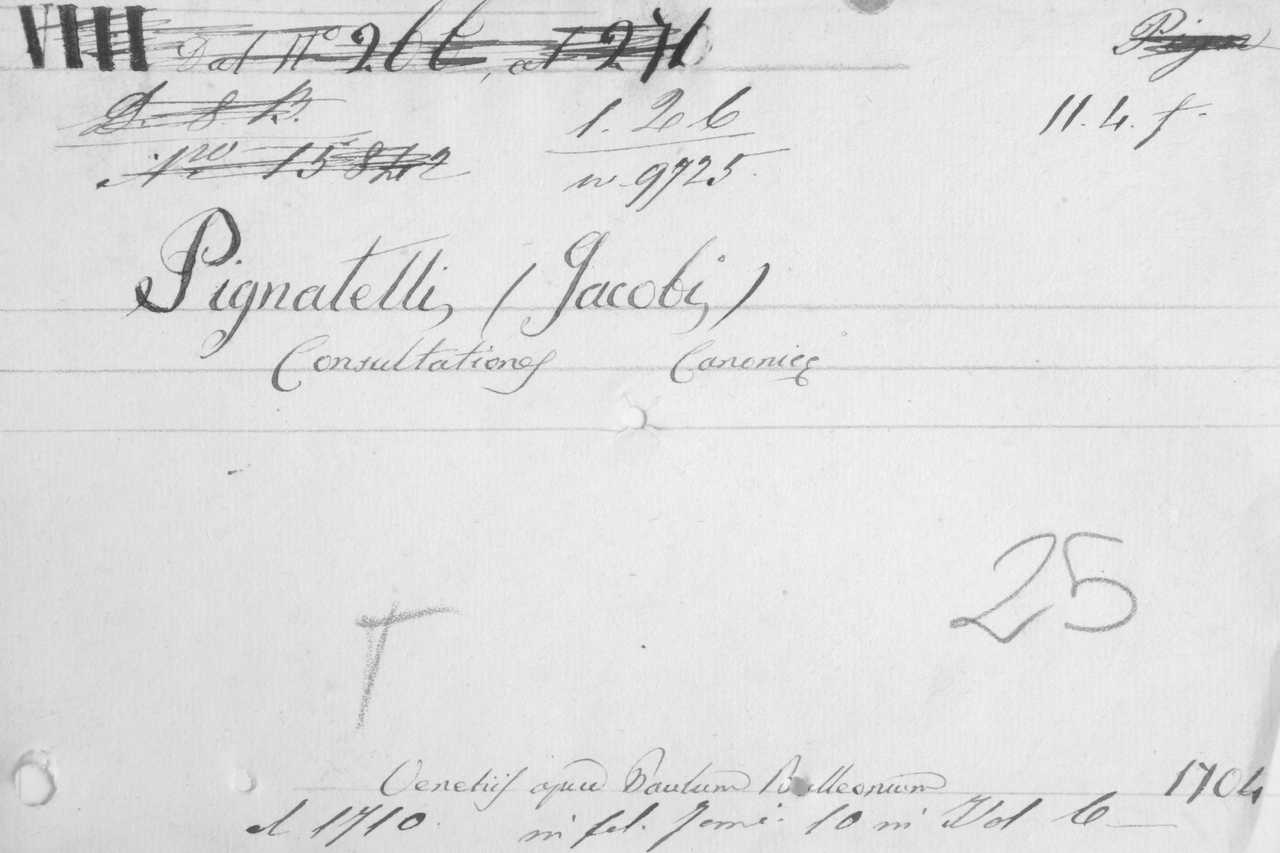 VIII Dal N° 266, al 270 Pign
D. 8 B. 1. 26 11. 4. f.
Nro 15842 n. 9725.
Pignatelli, (Jacobi,)
Consultationes Canonicę
25
Venetiis apud Paulum Balleonium 1704
al 1710. in fol. Tomi. 10 in Vol 6